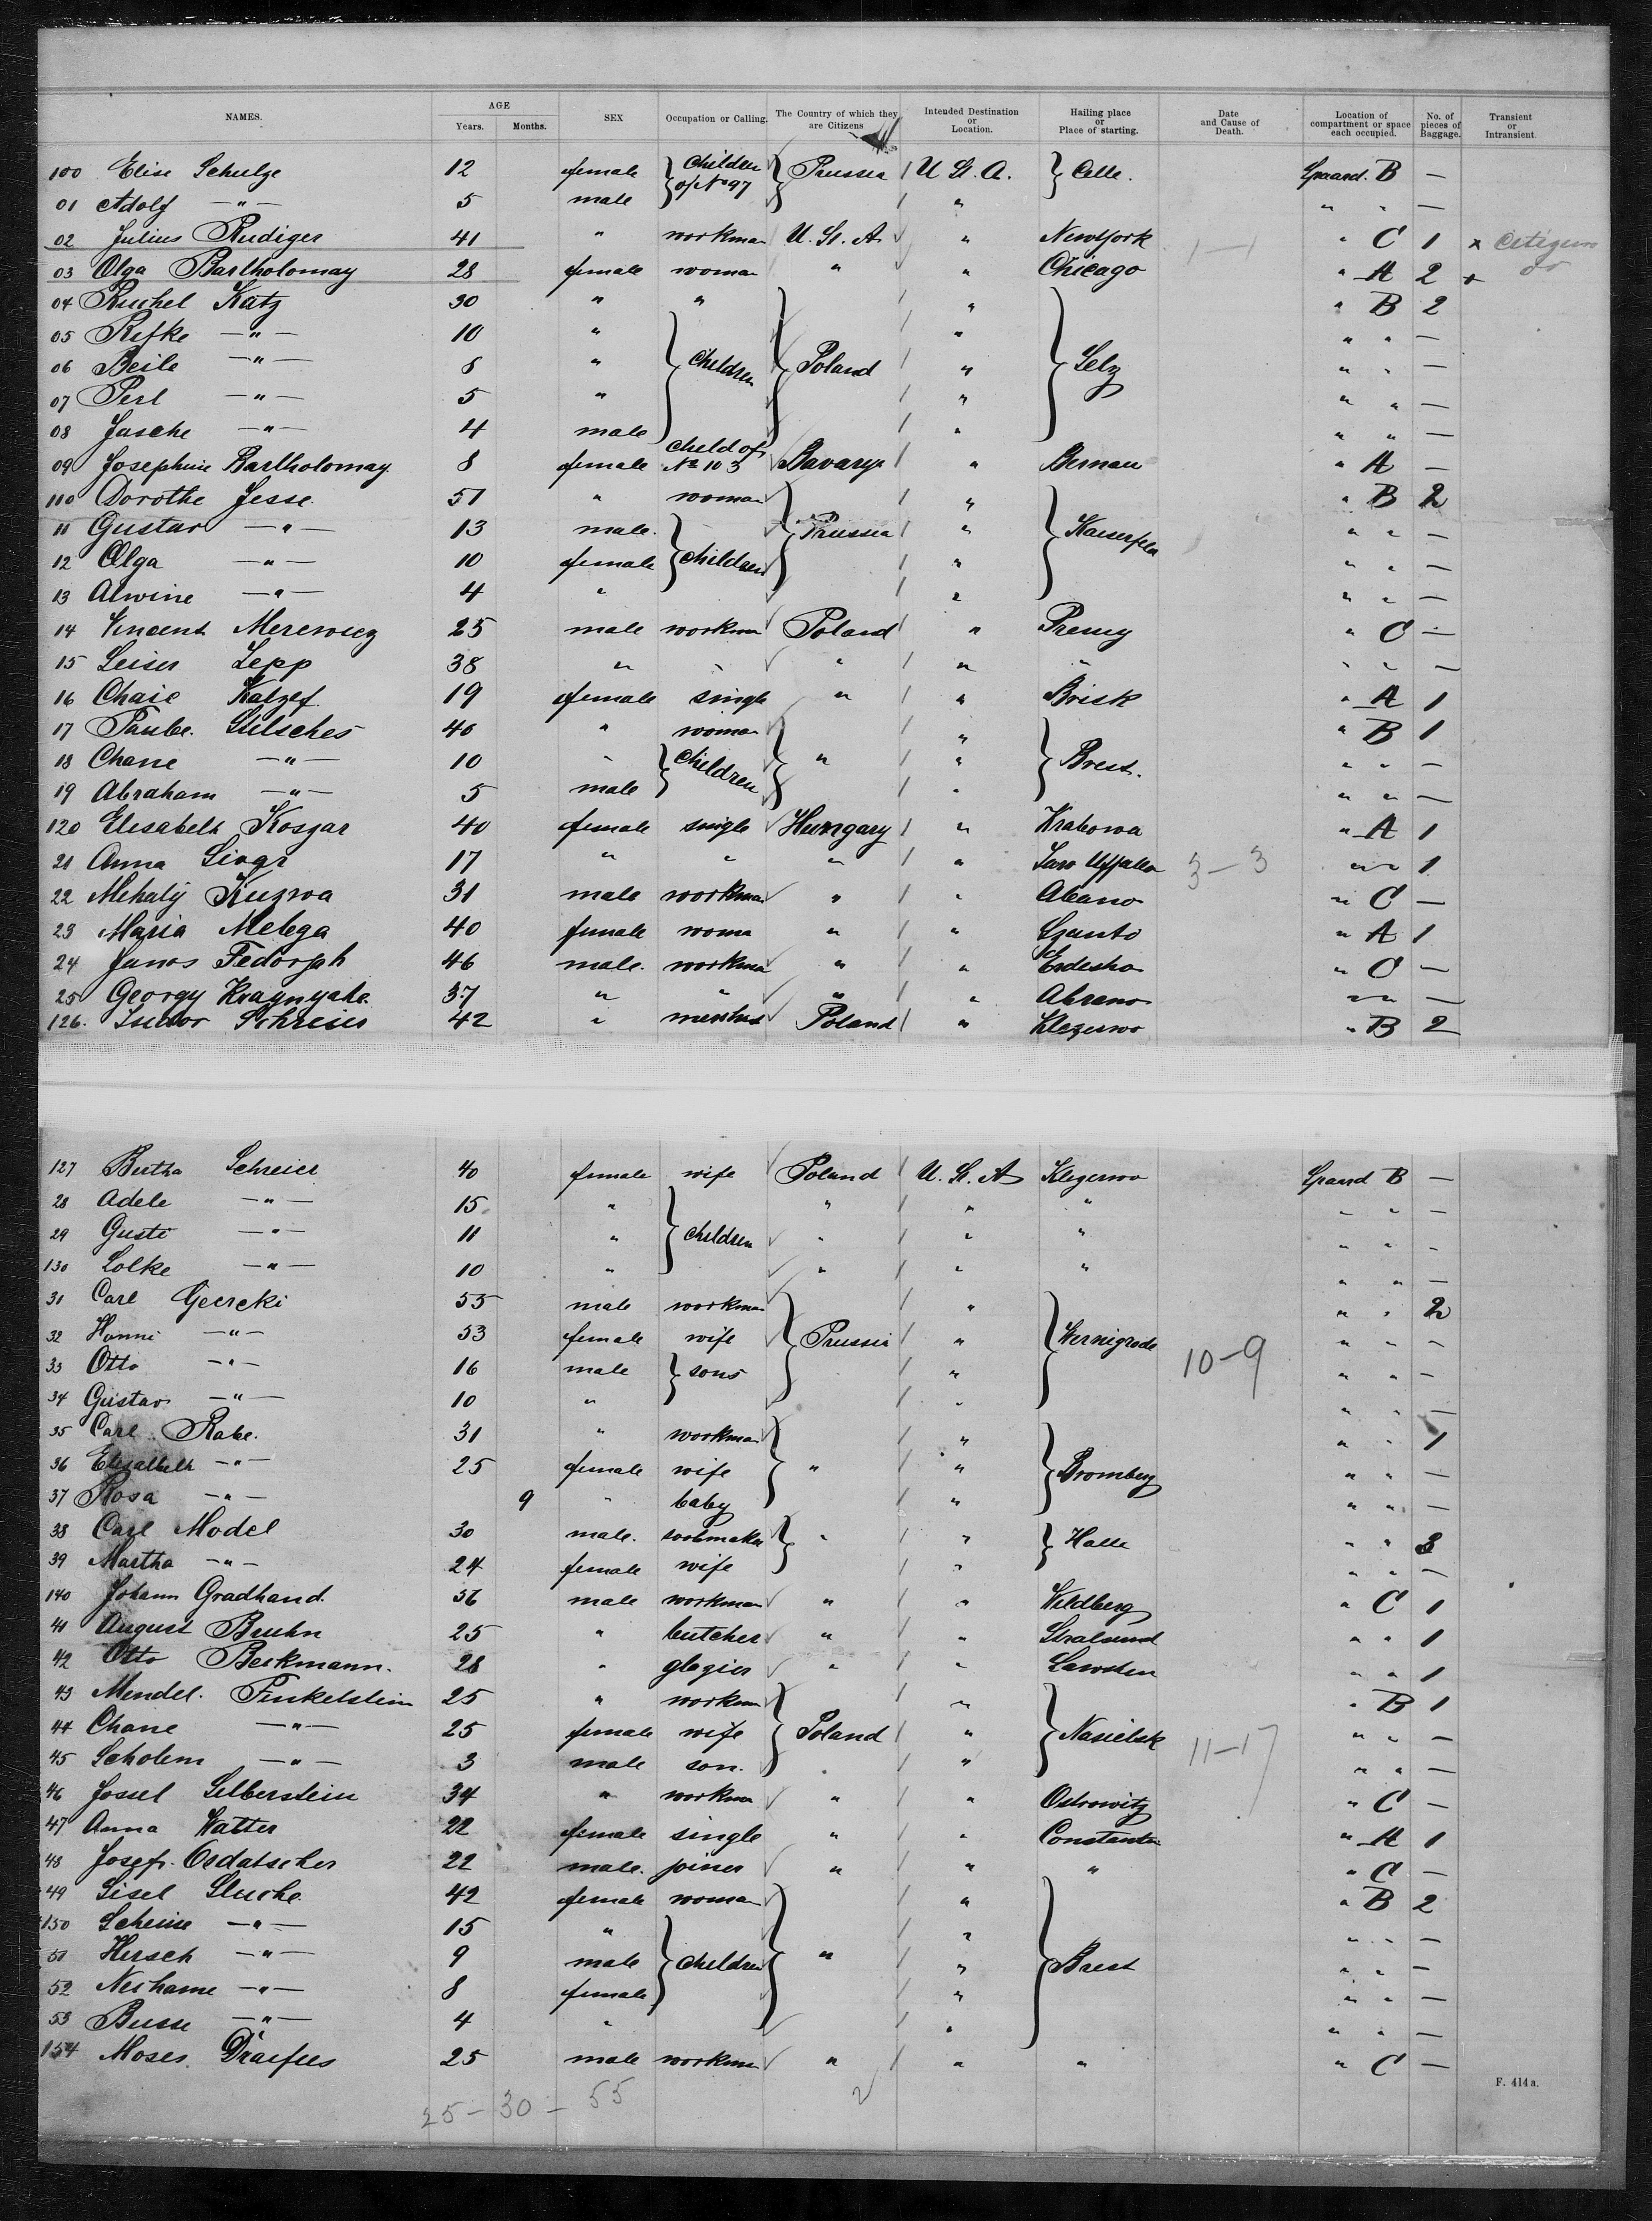 NAMES. AGE Years. Months. SEX Occupation or Calling. The Country of which they are Citizens Intended Destination or Location. Hailing place or Place of starting. Date and Cause of Death. Location of compartment or space each occupied. No. of pieces of Baggage. Transient or Intransient.
100 Elise Schulze 12 female Children of No 97 Prussia U St. A. Celle. B —
01 Adolf —"— 5 male " " " —
02 Julius Rudiger 41 " workman U. St. A " Newyork 1—1 " C 1 x Citizen
03 Olga Bartholomay 28 female woman " " Chicago " A 2 + do
04 Ruchel Katz 30 " " " " B 2
05 Rifke —"— 10 " " " " —
06 Beile —"— 8 " Children Poland " " " —
07 Perl —"— 5 " " " " —
08 Jasche —"— 4 male " " " —
09 Josephine Bartholomay 8 female child of No 103 Bavarya " Bernau " A —
110 Dorothe Jesse 51 " woman " " B 2
11 Gustav —"— 13 male. Prussia " " " —
12 Olga —"— 10 female children " " " —
13 Alwine —"— 4 " " " " —
14 Vincent 25 male workman Poland " " C —
15 Leiser Lepp 38 " " " " " " " —
16 Chaie 19 female single " " Brisk " A 1
17 Taube 40 " woman " " B 1
18 Chane —"— 10 " Children " " Brest. " " —
19 Abraham —"— 5 male " " " —
120 Elisabeth Koszar 40 female single Hungary " Krabowa " A 1
21 Anna 17 " " " " 3—3 " " 1
22 Mehalÿ 31 male workman " " " C —
23 Maria Melega 40 female woma " " Szanto " A 1
24 Janos 46 male. workman " " " C —
25 Georgy 37 " " " " " " —
126. Isidor Schreier 42 " Poland " " B 2
127 Bertha Schreier 40 female wife Poland U. St. A B —
28 Adele —"— 15 " " " " " " —
29 Guste —"— 11 " children " " " " " —
130 Lolke —"— 10 " " " " " " —
31 Carl Geercki 55 male workman " " " 2
32 Hanni —"— 53 female wife Prussia " Wernigrode " " —
33 Otto —"— 16 male sons " 10—9 " " —
34 Gustav —"— 10 " " " " —
35 Carl Rabe. 31 " workman " " " 1
36 Elisabeth —"— 25 female wife " " Bromberg " " —
37 Rosa —"— 9 " baby " " " —
38 Carl Model 30 male. " " Halle " " 3
39 Martha —"— 24 female wife " " " —
140 Johann Gradhand. 36 male workman " " Wildberg " C 1
41 August Bruhn 25 " butcher " " Stralsund " " 1
42 Otto Beckmann. 28 " glazier " " " " 1
43 Mendel. Finkelstein 25 " workman " " B 1
44 Chane —"— 25 female wife Poland " Nasielsk " " —
45 Scholem —"— 3 male son. " 11—17 " " —
46 Jossel Silberstein 34 " workman " " Ostrowitz " C —
47 Anna Watter 22 female single " " " A 1
48 Josef. 22 male. joiner " " " " C —
49 Sisel 42 female woman " " B 2
150 —"— 15 " " " " —
51 Hersch —"— 9 male children " " Brest " " —
52 Nechame —"— 8 female " " " —
53 Busse —"— 4 " " " " —
154 Moses 25 male workman " " " " C —
F. 414 a.
25—30—55